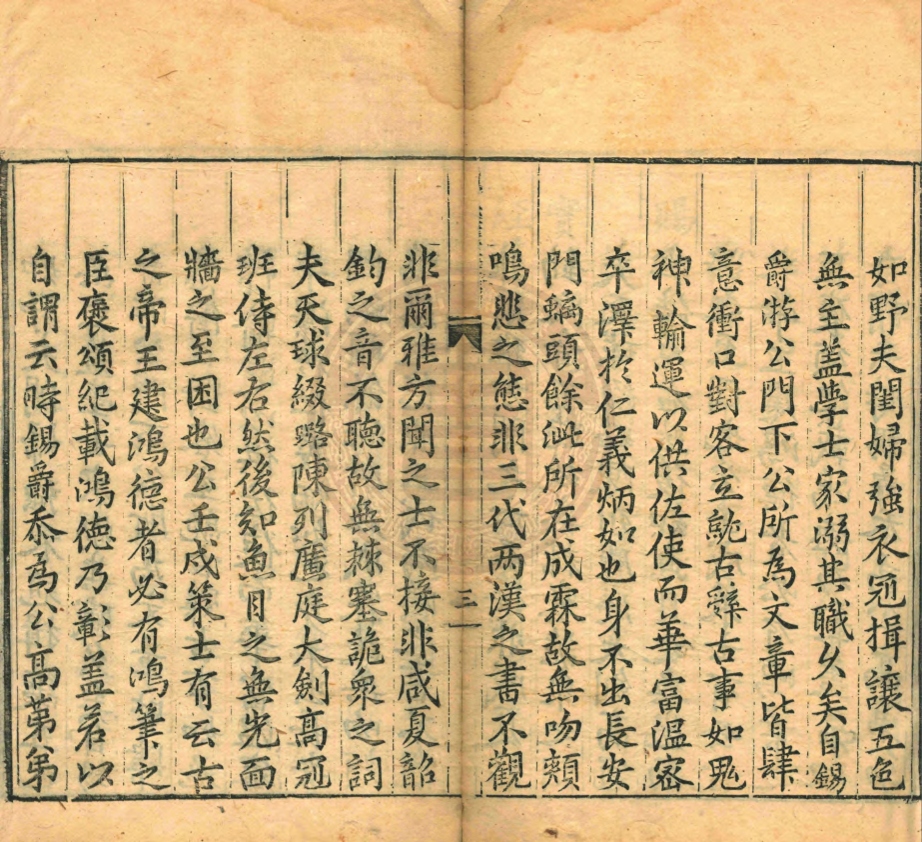 如野夫閨婦強衣冠揖讓五色
無主盖學士家溺其職久矣自錫
爵游公門下公所為文章皆肆
意衝口對客立就古辭古事如鬼
神輸運以供佐使而華富温密
卒澤於仁義炳如也身不出長安
門螭頭餘泚所在成霖故無吻頰
鳴悲之態非三代两漢之書不觀
三
非爾雅方聞之士不接非咸夏韶
鈞之音不聴故無棘塞詭衆之詞
夫天球綴璐陳列廣庭大劍高冠
班侍左右然後知魚目之無光面
牆之至困也公壬戍策士有云古
之帝王建鴻德者必有鴻筆之
臣褒頌紀載鴻德乃彰盖若以
自謂云時錫爵忝為公高第弟